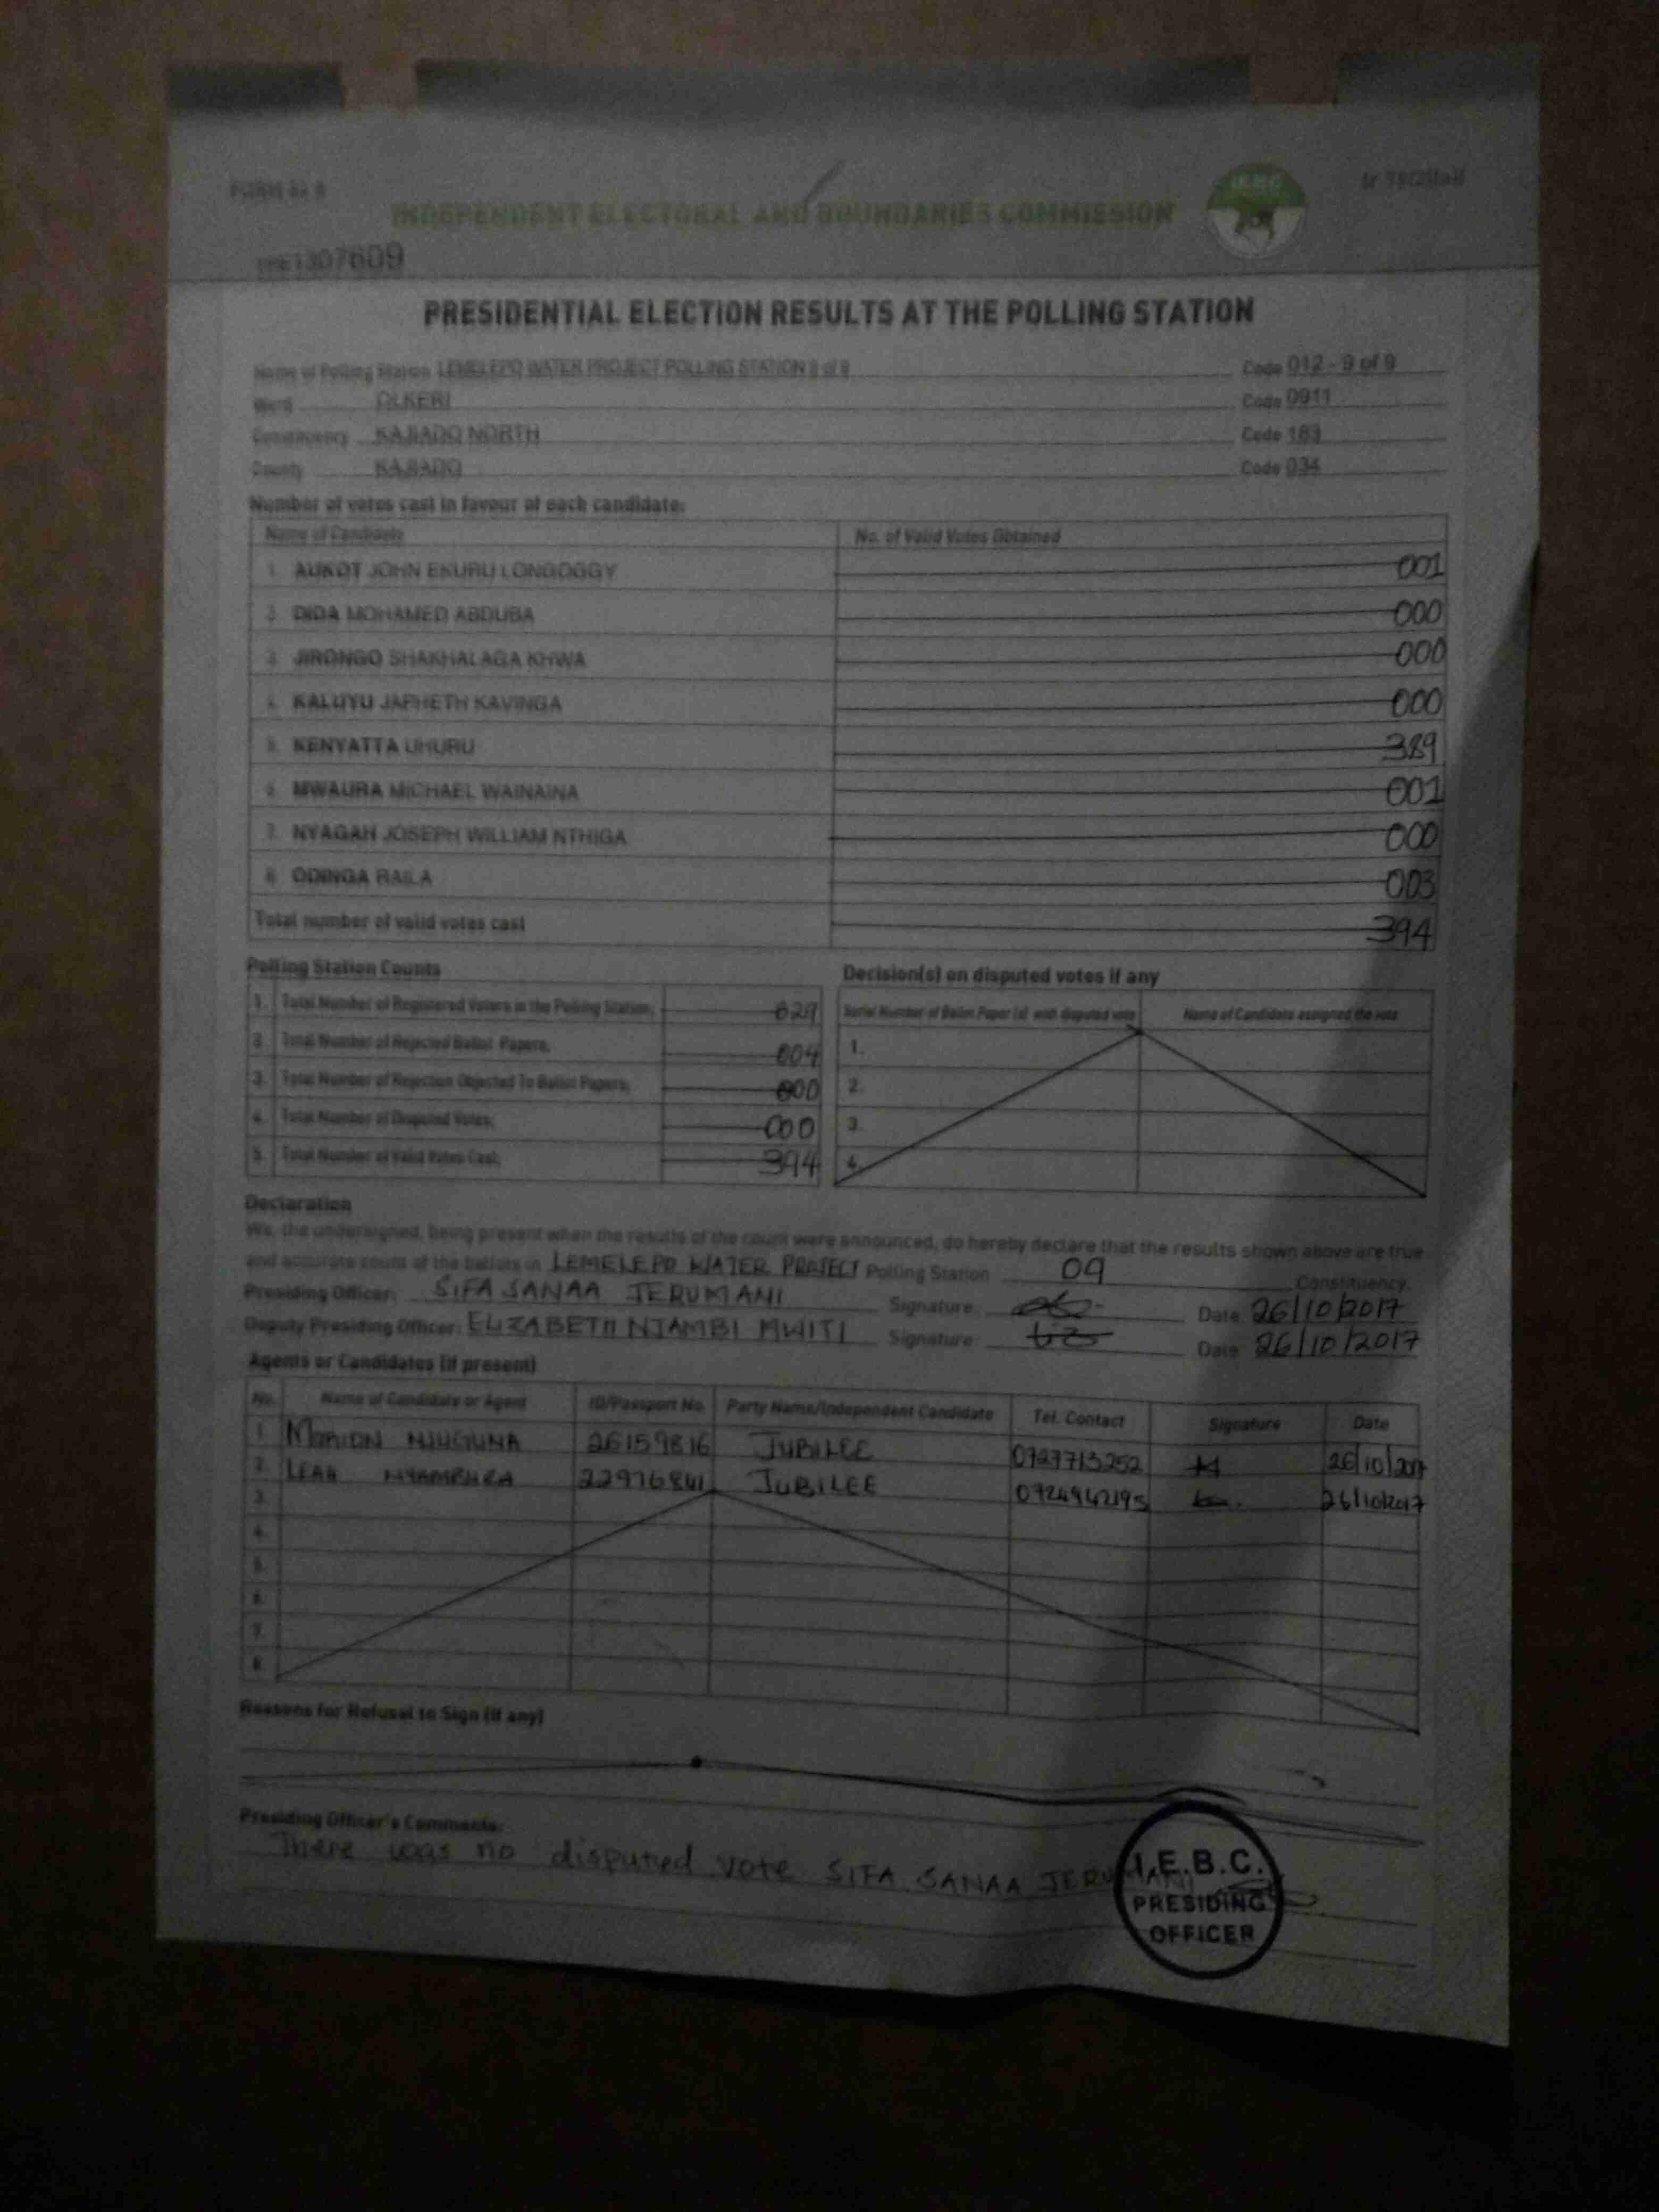 FORM 34 A
INDEPENDENT ELECTORAL AND BOUNDARIES COMMISSION
IEBC
1307609
PRESIDENTIAL ELECTION RESULTS AT THE POLLING STATION
Name of Polling Station LEMELEPO WATER PROJECT POLLING STATION 9 of 9 Code 012 - 9 of 9
Ward OLKERI Code 0911
Constituency KAJIADO NORTH Code 183
County KAJIADO Code 034
Number of votes cast in favour of each candidate:
Name of Candidate No. of Valid Votes Obtained
1. AUKOT JOHN EKURU LONGOGGY 001
2. DIDA MOHAMED ABDUBA 000
3. JIRONGO SHAKHALAGA KHWA 000
4. KALUYU JAPHETH KAVINGA 000
5. KENYATTA UHURU 389
6. MWAURA MICHAEL WAINAINA 001
7. NYAGAH JOSEPH WILLIAM NTHIGA 000
8. ODINGA RAILA 003
Total number of valid votes cast 394
Polling Station Counts
1. Total Number of Registered Voters in the Polling Station;
2. Total Number of Rejected Ballot Papers; 004
3. Total Number of Rejection Objected To Ballot Papers; 000
4. Total Number of Disputed Votes; 000
5. Total Number of Valid Votes Cast; 394
Decision(s) on disputed votes if any
Serial Number of Ballot Paper (s) with disputed vote Name of Candidate assigned the vote
1.
2.
3.
4.
Declaration
We, the undersigned, being present when the results of the count were announced, do hereby declare that the results shown above are true
and accurate count of the ballots in LEMELEPO WATER PROJECT Polling Station 09 Constituency.
Presiding Officer: SIFA SANAA JERUMANI Signature: Date 26/10/2017
Deputy Presiding Officer: ELIZABETH NJAMBI MWITI Signature: Date 26/10/2017
Agents or Candidates (if present)
No. Name of Candidate or Agent ID/Passport No. Party Name/Independent Candidate Tel. Contact Signature Date
1. MORION NJUGUNA 26159816 JUBILEE 0727713252 26/10/2017
2. LEAH NYAMBURA 22976841 JUBILEE 0724942195 26/10/2017
3.
4.
5.
6.
7.
8.
Reasons for Refusal to Sign (if any)
Presiding Officer's Comments:
There was no disputed vote SIFA SANAA JERUMANI
I.E.B.C.
PRESIDING
OFFICER